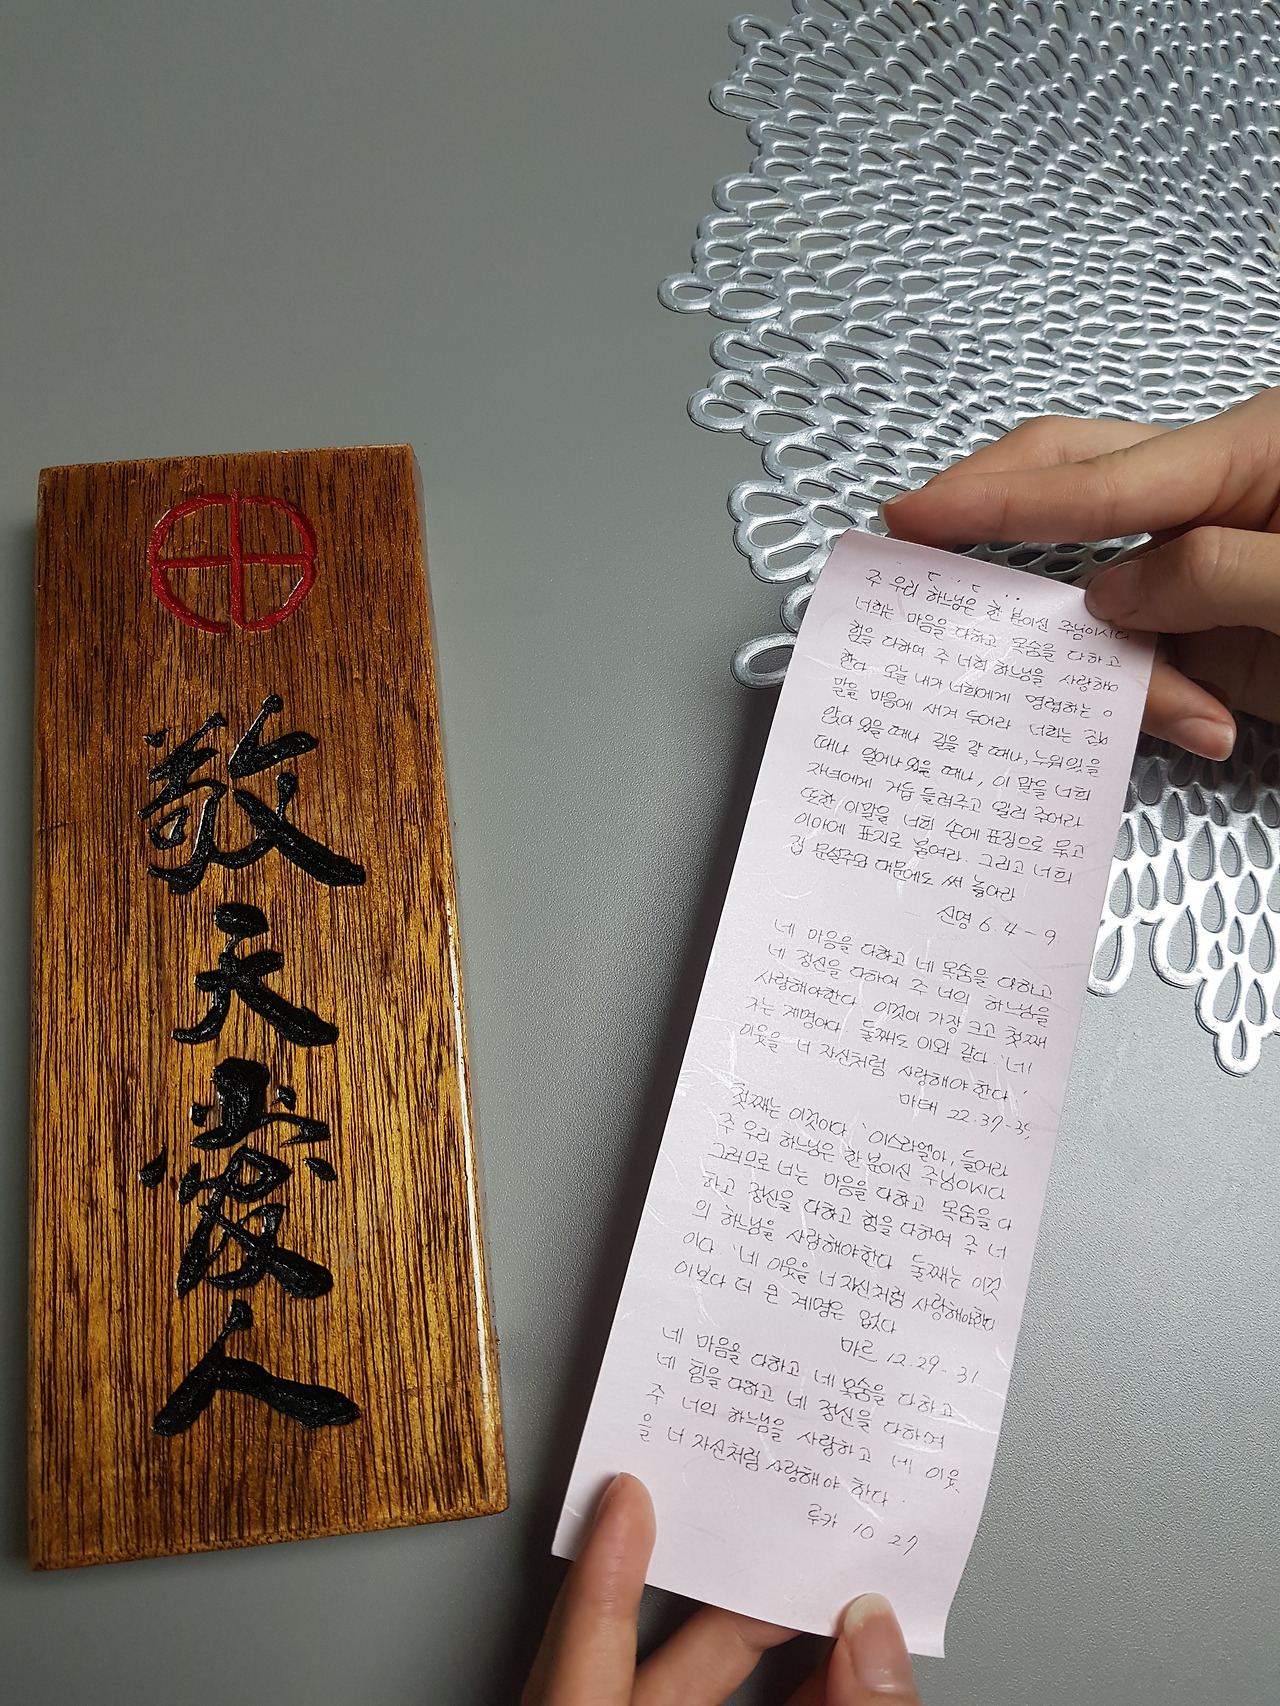 敬
天
愛
人
주 우리 하느님은 한 분이신 주님이시다
너희는 마음을 다하고 목숨을 다하고
힘을 다하여 주 너희 하느님을 사랑해야
한다. 오늘 내가 너희에게 명령하는 이
말을 마음에 새겨 두어라 너희는 집에
앉아 있을 때나 길을 갈 때나, 누워있을
때나 일어나 있을 때나, 이 말을 너희
자녀에게 거듭 들려주고 일러 주어라
또한 이말을 너희 손에 표징으로 묶고
이마에 표지로 붙여라. 그리고 너희
집 문설주와 대문에도 써 놓아라
신명 6. 4-9
네 마음을 다하고 네 목숨을 다하고
네 정신을 다하여 주 너의 하느님을
사랑해야한다. 이것이 가장 크고 첫째
가는 계명이다. 둘째도 이와 같다. '네
이웃을 너 자신처럼 사랑해야 한다.'
마태 22. 37-39,
첫째는 이것이다. '이스라엘아, 들어라
주 우리 하느님은 한 분이신 주님이시다
그러므로 너는 마음을 다하고 목숨을 다
하고 정신을 다하고 힘을 다하여 주 너
의 하느님을 사랑해야한다 둘째는 이것
이다. '네 이웃을 너 자신처럼 사랑해야한다
이보다 더 큰 계명은 없다
마르 12. 29-31
네 마음을 다하고 네 목숨을 다하고
네 힘을 다하고 네 정신을 다하여
주 너의 하느님을 사랑하고 네 이웃
을 너 자신처럼 사랑해야 한다.
루카 10 27